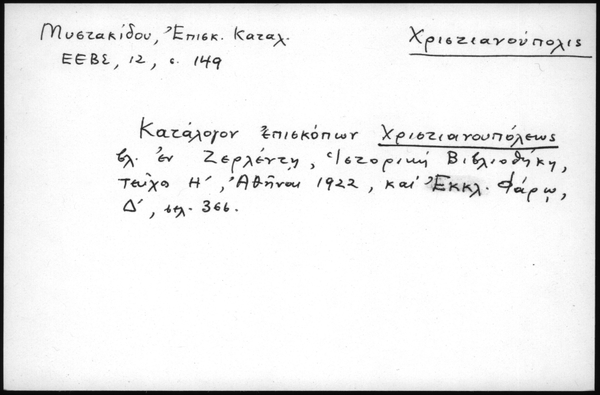 Μυστακίδου, Ἐπισκ. Καταλ.
ΕΕΒΣ, 12, σ. 149
Χριστιανούπολις
Κατάλογον Ἐπισκόπων Χριστιανουπόλεως
βλ. ἐν Ζερλέντῃ, Ἱστορικὴ Βιβλιοθήκη,
τεῦχος Η΄, Ἀθῆναι 1922, καὶ Ἐκκλ. Φάρῳ,
Δ΄, σελ. 366.